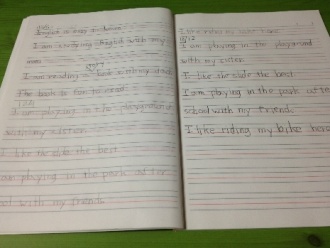 I am studying English with my
mom.
I am reading a book with my
The book is fun to read.
I am playing in the playground
with my sister.
I like the slide the best.
I am playing in the park after
school with my friends.
I like
I am playing in the playground
with my sister.
I like the slide the best.
I am playing in the park after
school with my friends.
I like riding my bike here